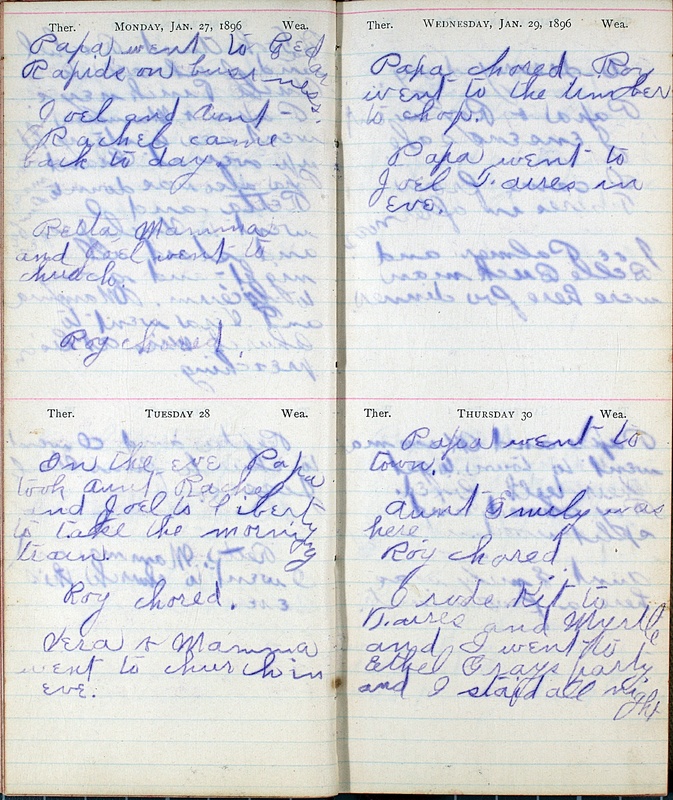 Ther. MONDAY, JAN. 27, 1896 Wea.
Papa went to Cedar
Rapids on business
Joel and Aunt
Rachel came
back to day.
Bella, Mamma
and Joel went to
church.
Roy chored.
Ther. TUESDAY 28 Wea.
In the eve Papa
took Aunt Rachel
and Joel to Liberty
to take the morning
train.
Roy chored.
Vera & Mamma
went to church in
eve.
Ther. WEDNESDAY, JAN. 29, 1896 Wea.
Papa chored Roy
went to the timber
to chop.
Papa went to
Joel in
eve.
Ther. THURSDAY 30 Wea.
Papa went to
town.
Aunt Emily was
here
Roy chored
I rode Kit to
and Myrtle
and I went to
Ethel Grays party
and I staid all night